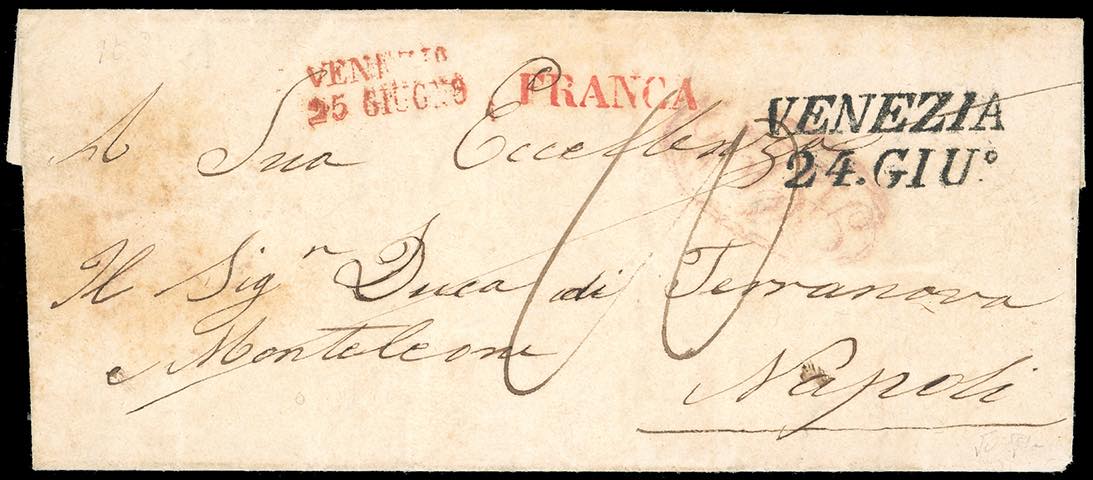 VENEZIA
25 GIUGNO
FRANCA
VENEZIA
24.GIU°
A Sua Eccellenza
Il Sigʳ Duca di Terranova
e Monteleone
Napoli